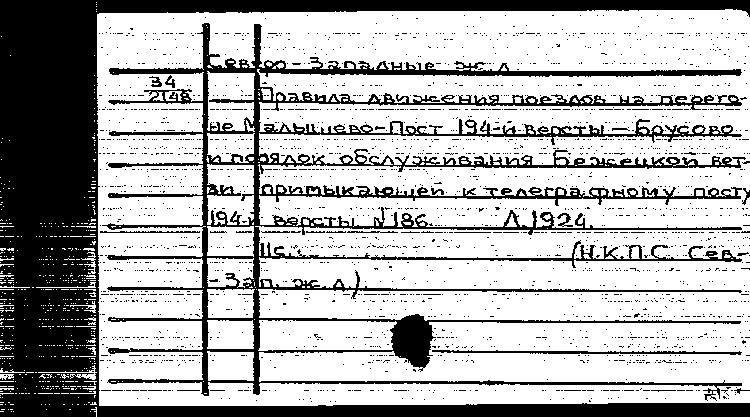 Северо-Западные ж.д.
34
2148
Правила движения поездов на перего-
не Малышево-Пост 194-й версты — Брусово
и порядок обслуживания Бежецкой вет-
ви, примыкающей к телеграфному посту
194-й версты №186. Л.,1924.
11с. (Н.К.П.С. Сев.-
-Зап. ж.д.)